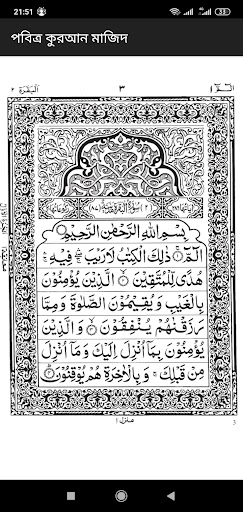 21:51
পবিত্র কুরআন মাজিদ
البقرة ٢
٣
الٓمّٓ ١
بِسْمِ اللهِ الرَّحْمٰنِ الرَّحِيْمِ
الٓمّٓ ۚ ذٰلِكَ الْكِتٰبُ لَا رَيْبَ ۛ فِيْهِ ۛ
هُدًى لِّلْمُتَّقِيْنَ ۙ الَّذِيْنَ يُؤْمِنُوْنَ
بِالْغَيْبِ وَيُقِيْمُوْنَ الصَّلٰوةَ وَمِمَّا
رَزَقْنٰهُمْ يُنْفِقُوْنَ ۙ وَالَّذِيْنَ
يُؤْمِنُوْنَ بِمَآ اُنْزِلَ اِلَيْكَ وَمَآ اُنْزِلَ
مِنْ قَبْلِكَ ۚ وَبِالْاٰخِرَةِ هُمْ يُوْقِنُوْنَ
منزل ١
3